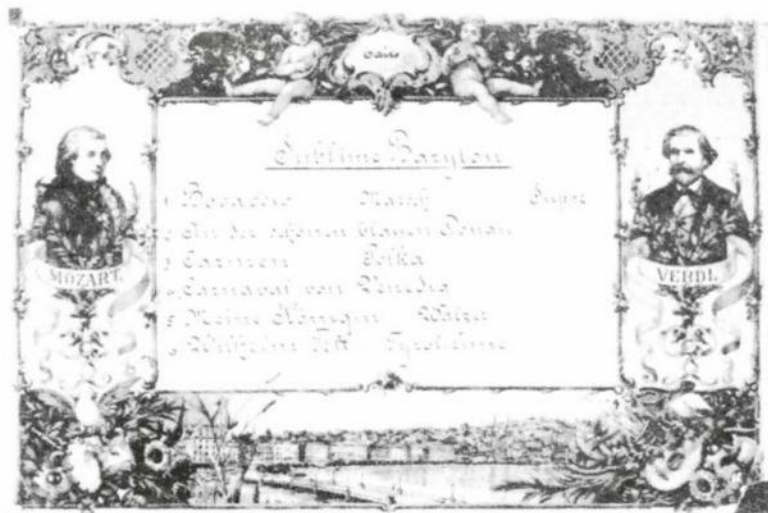 Sublime Baryton
1 Bocaccio Marsch Suppe
2 An der schönen blauen Donau
3 Carmen Polka
4 Carnaval von Venedig
5 Meine Königin Walzer
6 Wilhelm Tell Tyrolienne
MOZART.
VERDI.